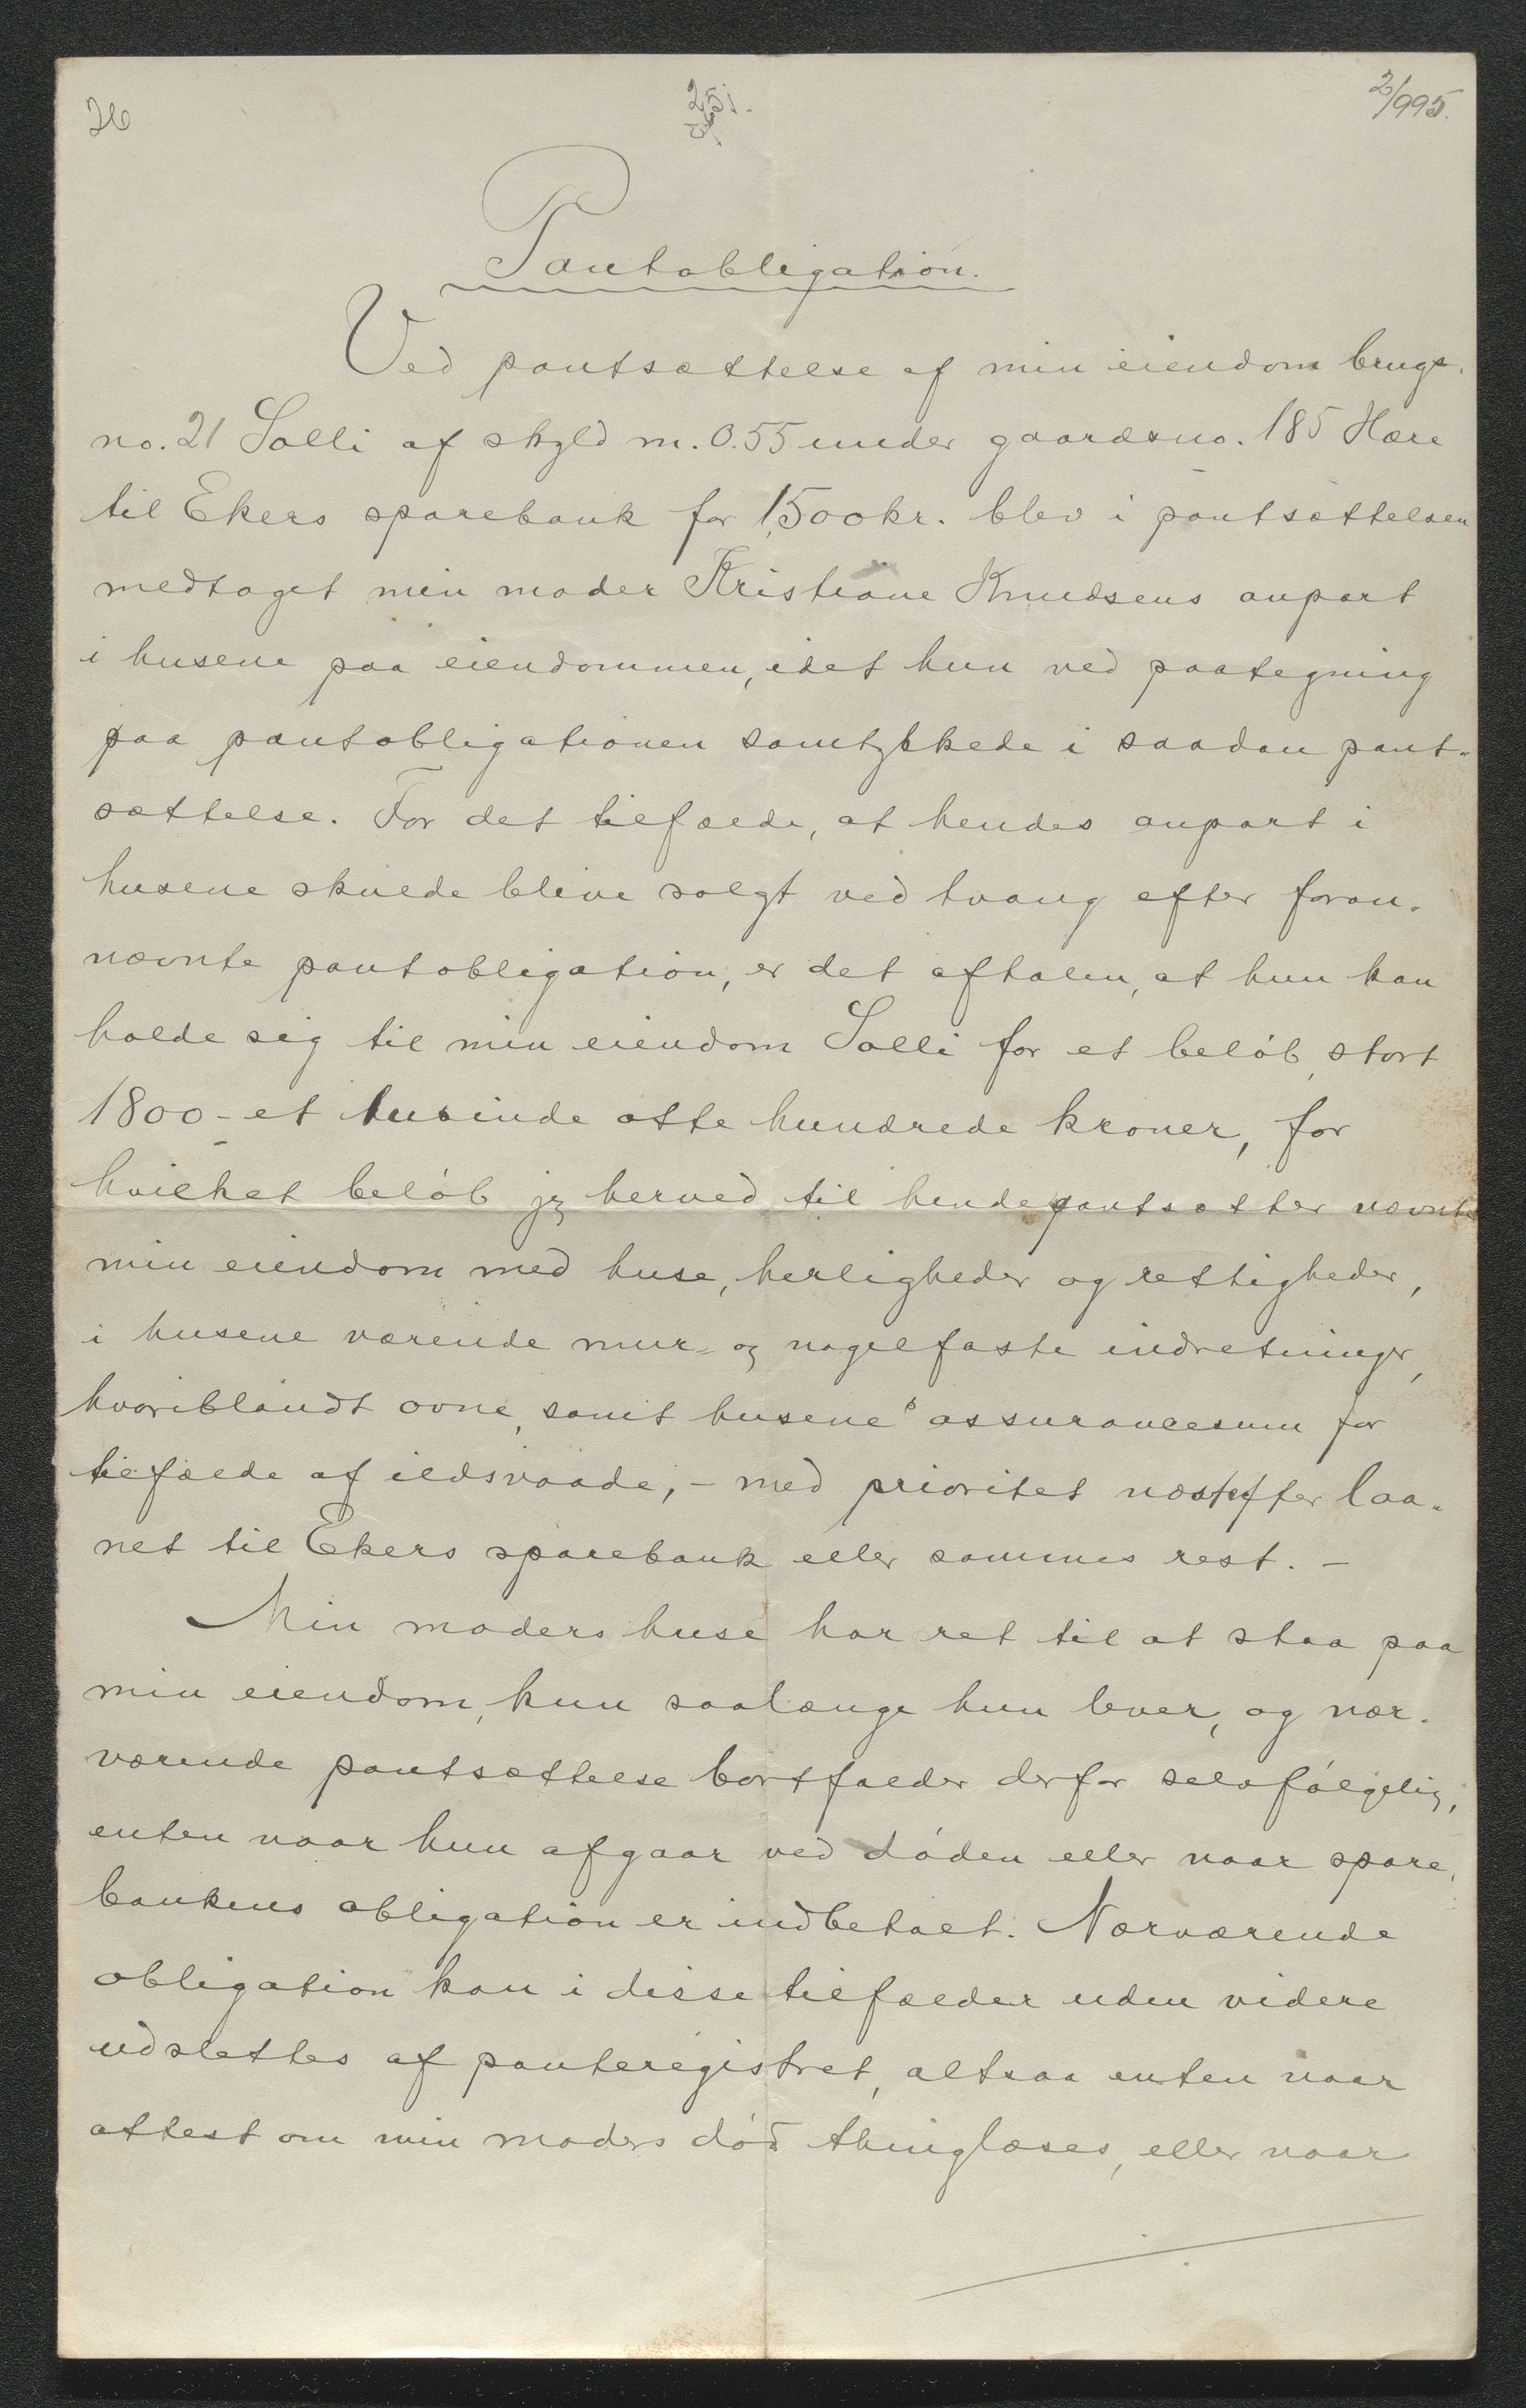 26
2/995.
Pantobligation.
Ved pantsættelse af min eiendom brugs-
no. 21 Solli af skyld m. 0.55 under gaardsno. 185 Hære
til Ekers sparebank for 1500 kr. blev i pantsættelsen
medtaget min moder Kristiane Knudsens anpart
i husene paa eiendommen, idet hun ved paategning
paa pantobligationen samtykkede i saadan pant-
sættelse. For det tilfælde, at hendes anpart i
husene skulde blive solgt ved tvang efter foran-
nævnte pantobligation, er det aftalen, at hun kan
holde sig til min eiendom Solli for et beløb, stort
1800 - et tusinde otte hundrede kroner, for
hvilket beløb jeg herved til hende pantsætter nævnte
min eiendom med huse, herligheder og rettigheder,
i husene værende mur- og nagelfaste indretninger,
hvoriblandt ovne, samt husenes assurancesum for
tilfælde af ildsvaade, - med prioritet næst efter laa-
net til Ekers sparebank eller sammes rest. -
Min moders huse har ret til at staa paa
min eiendom, kun saalænge hun lever, og nær-
værende pantsættelse bortfalder derfor selvfølgelig,
enten naar hun afgaar ved døden eller naar spare-
bankens obligation er indbetalt. Nærværende
obligation kan i disse tilfælder uden videre
udslettes af panteregistret, altsaa enten naar
attest om min moders død thinglæses, eller naar